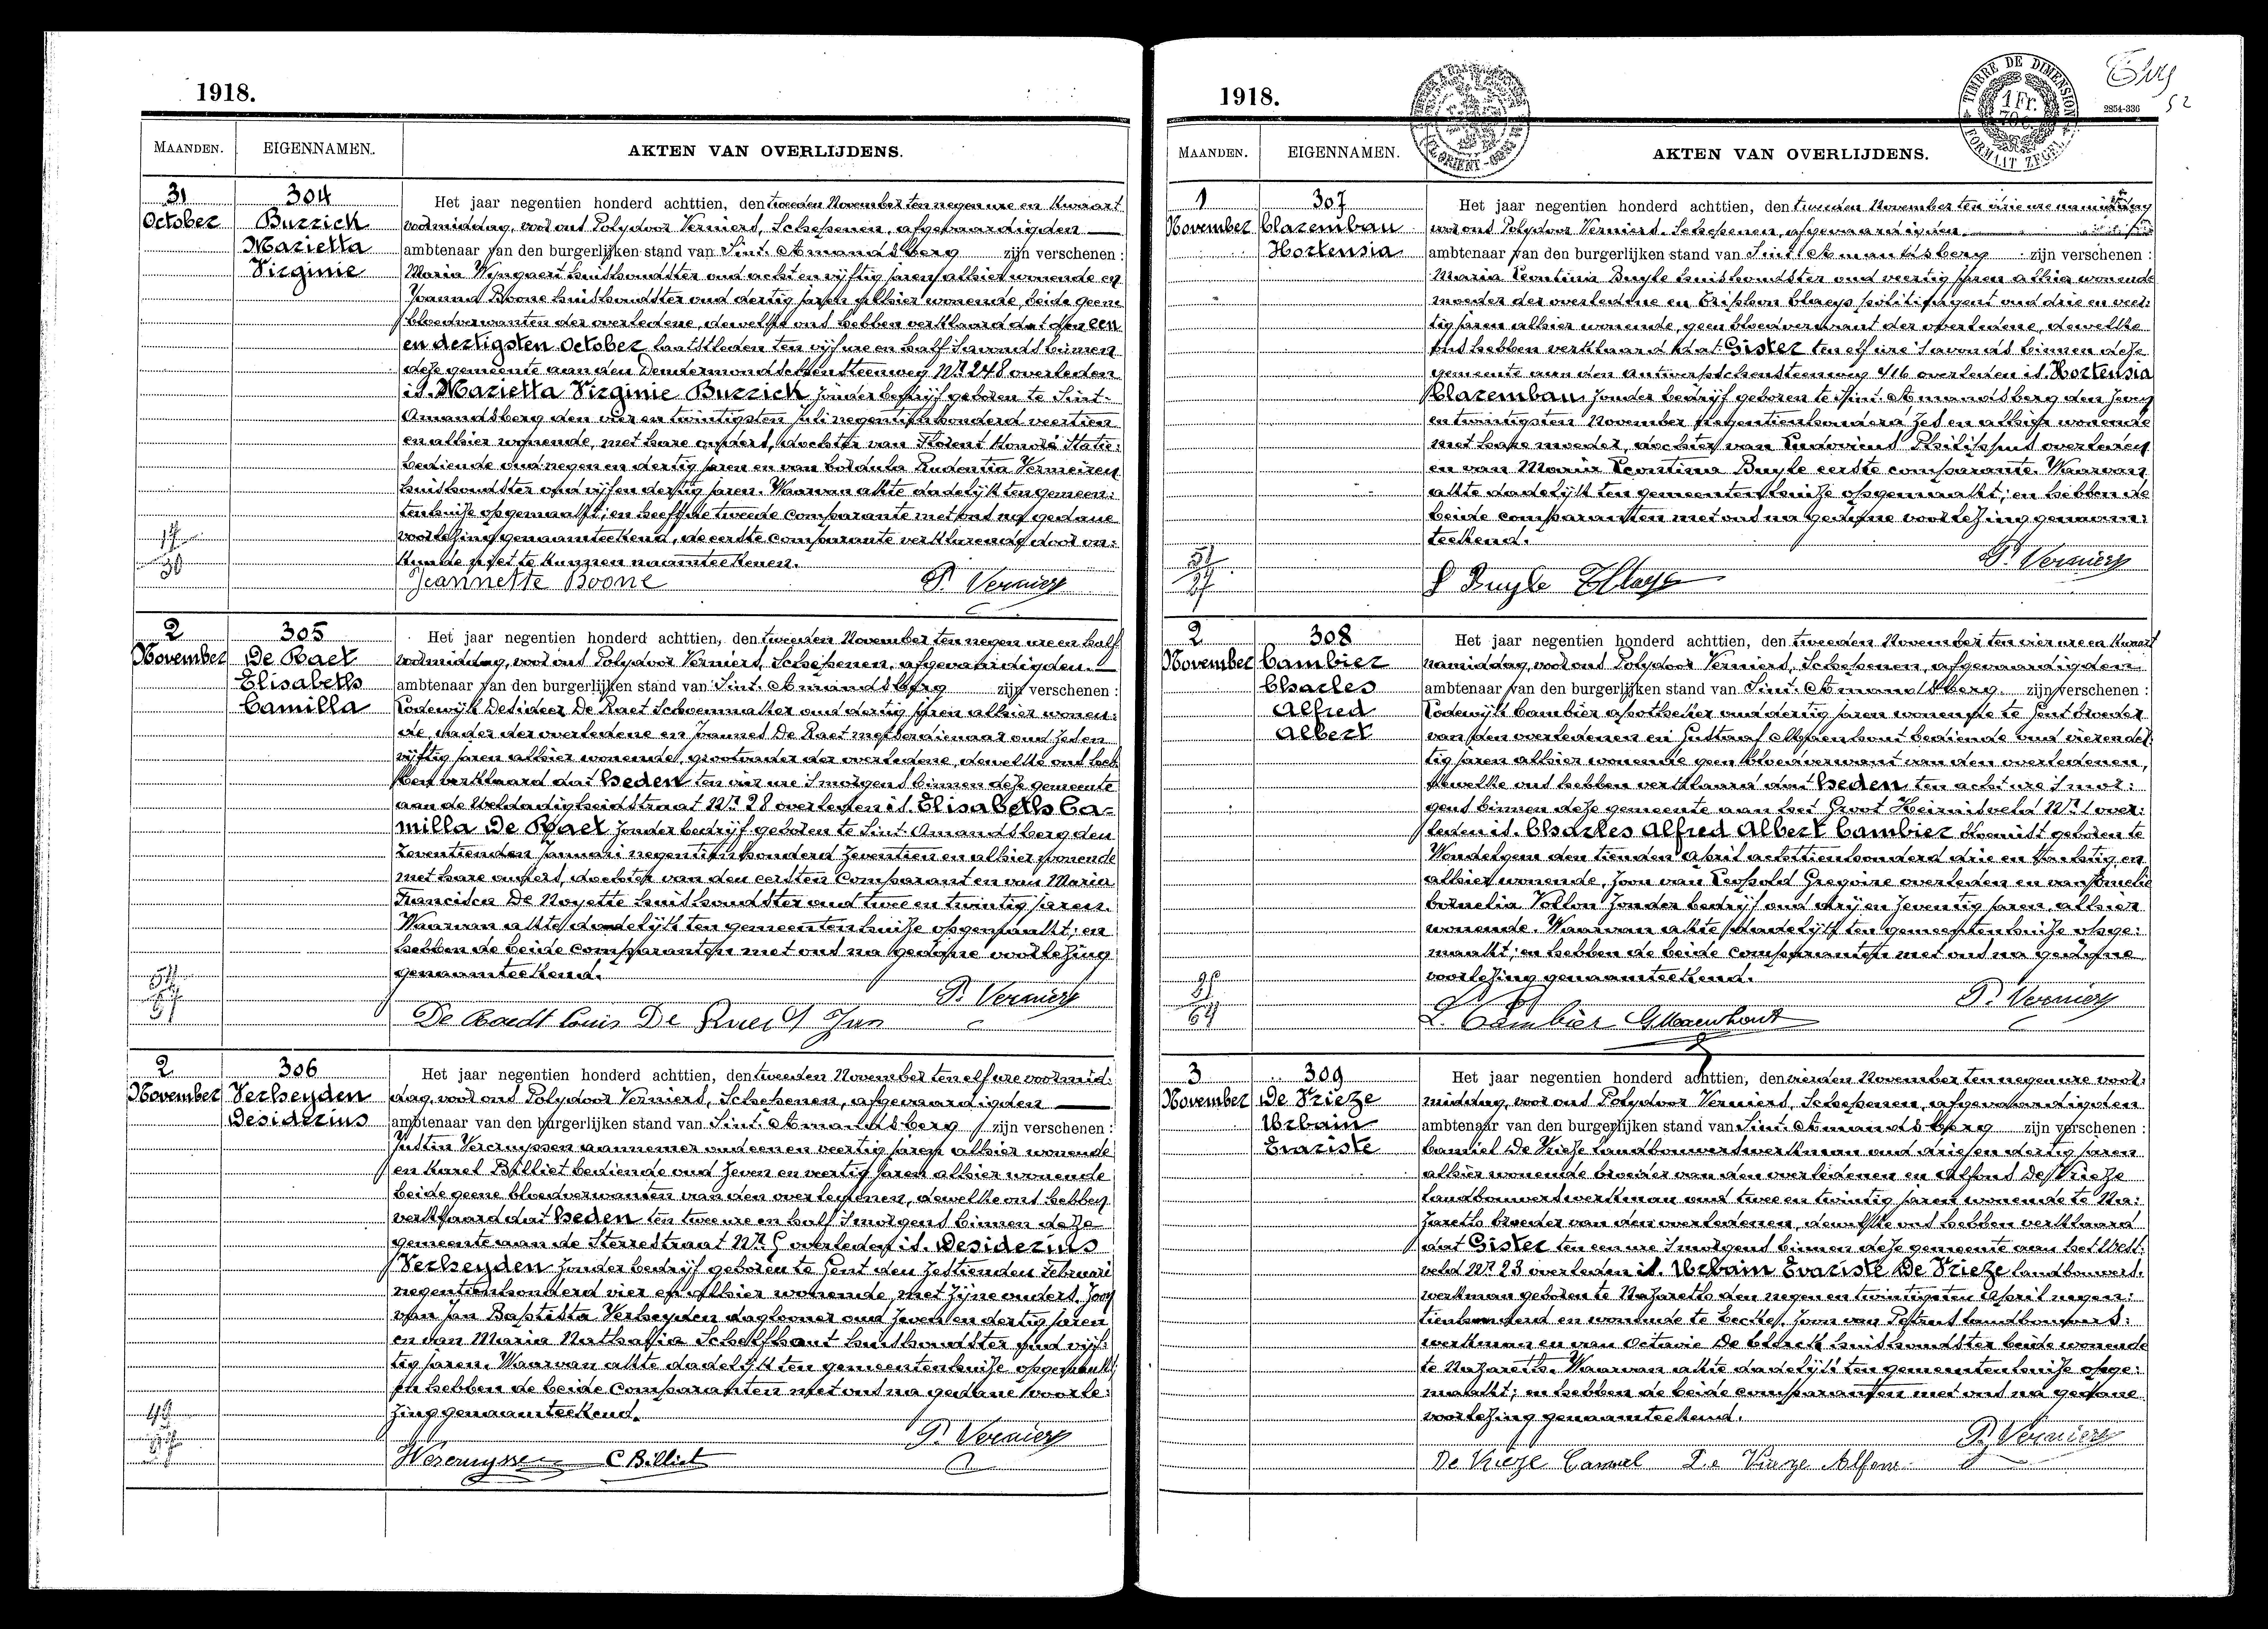 1918.
MAANDEN. EIGENNAMEN. AKTEN VAN OVERLIJDENS.
31 October
304
Buzzick
Marietta
Virginie
Het jaar negentien honderd achttien, den tweeden November ten negen ure en kwaart
voormiddag, voor ons Polydoor Verniers, Schepenen, afgevaardigden
ambtenaar van den burgerlijken stand van Sint-Amandsberg zijn verschenen :
Maria Wyngaert huishoudster oud acht en vijftig jaren alhier wonende en
Joanna Boone huishoudster oud dertig jaren alhier wonende, beide geene
bloedverwanten der overledene, dewelke ons hebben verklaard dat den een
en dertigsten October laatstleden ten vijf ure en half 's avonds binnen
deze gemeente aan den Dendermondschensteenweg Nr 248 overleden
is Marietta Virginie Buzzick zonder bedrijf geboren te Sint-
Amandsberg den vier en twintigsten Juli negentienhonderd veertien
en alhier wonende, met hare ouders, dochter van Florent Honoré Statie:
bediende oud negen en dertig jaren en van Coldula Prudentia Vermeiren
huishoudster oud vijf en dertig jaren. Waarvan akte dadelijk ten gemeen:
tenhuize opgemaakt; en heeft de tweede comparante met ons na gedane
voorlezing genaamteekend, de eerste comparante verklarende door on:
kunde niet te kunnen naamteekenen.
Jeannette Boone P. Verniers
2 November
305
De Raet
Elisabeth
Camilla
Het jaar negentien honderd achttien, den tweeden November ten negen ure en half
voormiddag, voor ons Polydoor Verniers, Schepenen, afgevaardigden.
ambtenaar van den burgerlijken stand van Sint-Amandsberg zijn verschenen :
Lodewijk Desideer De Raet Schoenmaker oud dertig jaren alhier wonen:
de, vader der overledene en Joannes De Raet metserdienaar oud zes en
vijftig jaren alhier wonende, grootvader der overledene, dewelke ons heb
ben verklaard dat heden ten vier ure 's morgens binnen deze gemeente
aan de Weldadigheidstraat Nr 28 overleden is Elisabeth Ca-
milla De Raet zonder bedrijf geboren te Sint-Amandsberg den
zeventienden Januari negentienhonderd zeventien en alhier wonende
met hare ouders, dochter van den eersten Comparant en van Maria
Francisca De Noyette huishoudster oud twee en twintig jaren.
Waarvan akte dadelijk ten gemeentenhuize opgemaakt; en
hebben de beide comparanten met ons na gedane voorlezing
genaamteekend.
P. Verniers
De Raedt Louis De Raedt Jan
2 November
306
Verheyden
Desiderius
Het jaar negentien honderd achttien, den tweeden November ten elf ure voormid:
dag, voor ons Polydoor Verniers, Schepenen, afgevaardigden
ambtenaar van den burgerlijken stand van Sint-Amandsberg zijn verschenen :
Justin Vercruyssen aannemer oud een en veertig jaren alhier wonende
en Karel Billiet bediende oud zeven en veertig jaren alhier wonende
beide geene bloedverwanten van den overledenen, dewelke ons hebben
verklaard dat heden ten twee ure en half 's morgens binnen deze
gemeente aan de Sterrestraat Nr 5 overleden is Desiderius
Verheyden zonder bedrijf geboren te Gent den zestienden Februari
negentienhonderd vier en alhier wonende, met zijne ouders, zoon
van Jan Baptista Verheyden daglooner oud zeven en dertig jaren
en van Maria Nathalia Schelfhout huishoudster oud vijf:
tig jaren. Waarvan akte dadelijk ten gemeentenhuize opgemaakt;
en hebben de beide Comparanten met ons na gedane voorle:
zing genaamteekend.
P. Verniers
Vercruyssen C. Billiet
1918.
TIMBRE DE DIMENSION
1 Fr.
FORMAAT ZEGEL
2854-336
52
MAANDEN. EIGENNAMEN. AKTEN VAN OVERLIJDENS.
1 November
307
Clazembau
Hortensia
Het jaar negentien honderd achttien, den tweeden November ten drie ure namiddag
voor ons Polydoor Verniers, Schepenen, afgevaardigden
ambtenaar van den burgerlijken stand van Sint-Amandsberg zijn verschenen :
Maria Leontina Buyle huishoudster oud veertig jaren alhier wonende
moeder der overledene en Triphon Claeys politieagent oud drie en veer:
tig jaren alhier wonende, geen bloedverwant der overledene, dewelke
ons hebben verklaard dat Gister ten elf ure 's avonds binnen deze
gemeente aan den Antwerpschensteenweg 416 overleden is Hortensia
Clazembau zonder bedrijf geboren te Sint-Amandsberg den zeven
en twintigsten November negentienhonderd zes en alhier wonende
met hare moeder, dochter van Ludovicus Philippus overleden
en van Maria Leontina Buyle eerste comparante. Waarvan
akte dadelijk ten gemeentenhuize opgemaakt; en hebben de
beide comparanten met ons na gedane voorlezing genaam:
teekend.
P. Verniers
L Buyle T Claeys
2 November
308
Cambier
Charles
Alfred
Albert
Het jaar negentien honderd achttien, den tweeden November ten vier ure en kwaart
namiddag, voor ons Polydoor Verniers, Schepenen, afgevaardigden
ambtenaar van den burgerlijken stand van Sint-Amandsberg zijn verschenen :
Lodewijk Cambier apotheker oud dertig jaren wonende te Gent broeder
van den overledenen en Gustaaf Maenhout bediende oud vier en der:
tig jaren alhier wonende geen bloedverwant van den overledenen,
dewelke ons hebben verklaard dat heden ten acht ure 's mor:
gens binnen deze gemeente aan het Groot Heirnisveld Nr 1 over:
leden is Charles Alfred Albert Cambier bloemist geboren te
Wondelgem den tienden April achttienhonderd drie en tachtig en
alhier wonende, zoon van Leopold Gregoire overleden en van Amelie
Cornelia Vollon zonder bedrijf oud drij en zeventig jaren, alhier
wonende. Waarvan akte dadelijk ten gemeentenhuize opge:
maakt; en hebben de beide comparanten met ons na gedane
voorlezing genaamteekend.
P. Verniers
L. Cambier G Maenhout
3 November
309
De Vrieze
Urbain
Evariste
Het jaar negentien honderd achttien, den vierden November ten negen ure voor:
middag, voor ons Polydoor Verniers, Schepenen, afgevaardigden
ambtenaar van den burgerlijken stand van Sint-Amandsberg zijn verschenen :
Camiel De Vrieze landbouwerswerkman oud drie en dertig jaren
alhier wonende broeder van den overledenen en Alfons De Vrieze
landbouwerswerkman oud twee en twintig jaren wonende te Na:
zareth broeder van den overledenen, dewelke ons hebben verklaard
dat Gister ten een ure 's morgens binnen deze gemeente aan het West:
veld Nr 23 overleden is Urbain Evariste De Vrieze landbouwers:
werkman geboren te Nazareth den negen en twintigsten April negen:
tienhonderd en wonende te Eecke, zoon van Petrus landbouwers:
werkman en van Octavie De Clerck huishoudster beide wonende
te Nazareth. Waarvan akte dadelijk ten gemeentenhuize opge:
maakt; en hebben de beide comparanten met ons na gedane
voorlezing genaamteekend.
P. Verniers
De Vrieze Camiel De Vrieze Alfons